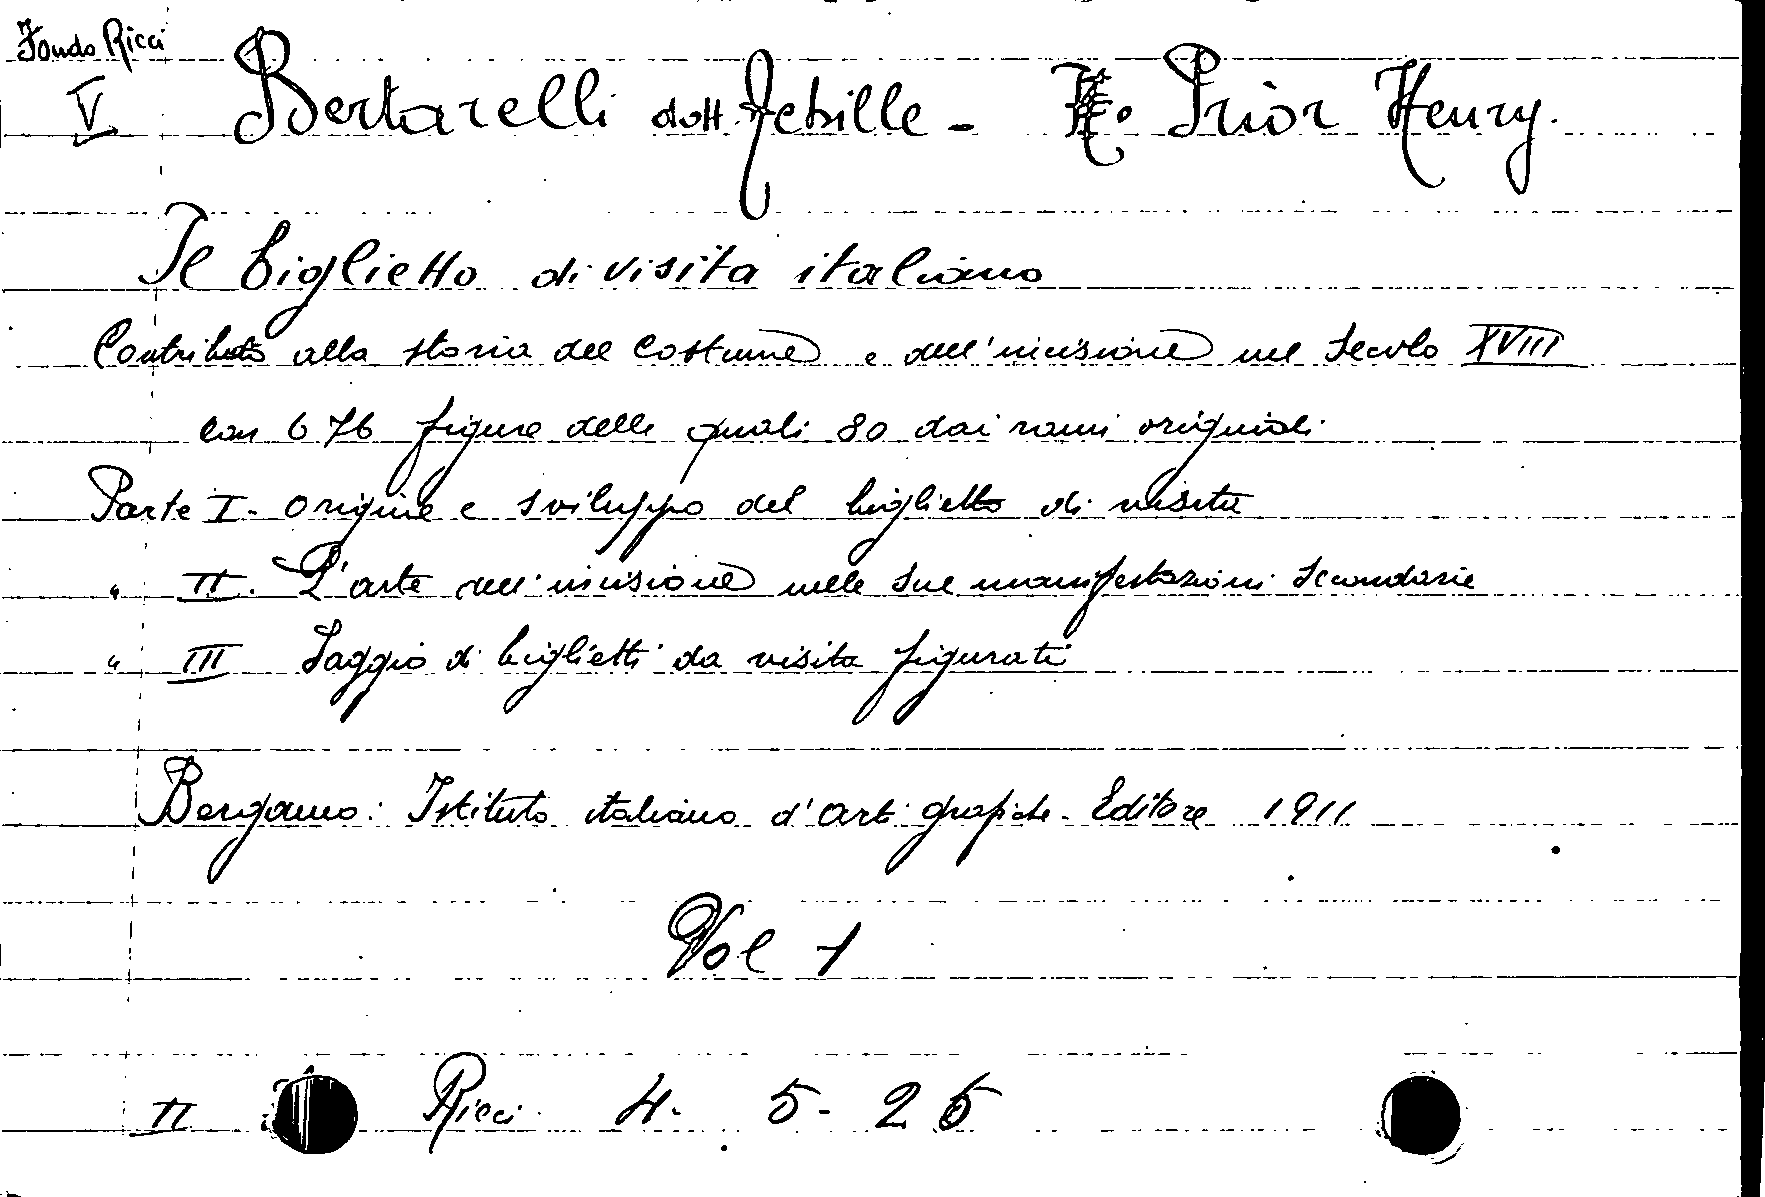 Fondo Ricci
V Bertarelli dott. Achille - H. Prior Henry.
Il biglietto di visita italiano
Contributo alla storia del costume e dell'incisione nel secolo XVIII
con 676 figure delle quali 80 dai rami originali
Parte I - Origine e sviluppo del biglietto di visita
" II. L'arte dell'incisione nelle sue manifestazioni secondarie
" III Saggio di biglietti da visita figurati
Bergamo: Istituto italiano d'arti grafiche - Editore 1911
Vol 1
II Ricci 4. 5 - 25